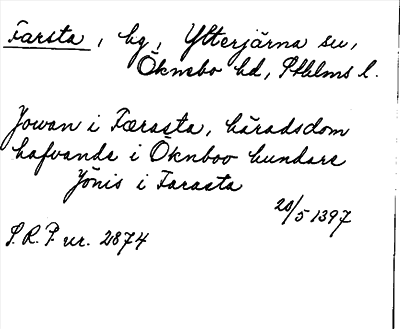 Farsta, hg, Ytterjärna sn,
Öknebo hd, Sthlms l.
Jowan i Færasta, häradsdom
hafvande i Öknboo hundare
Jönis i Farasta
20/5 1397
S.R.P. nr. 2874